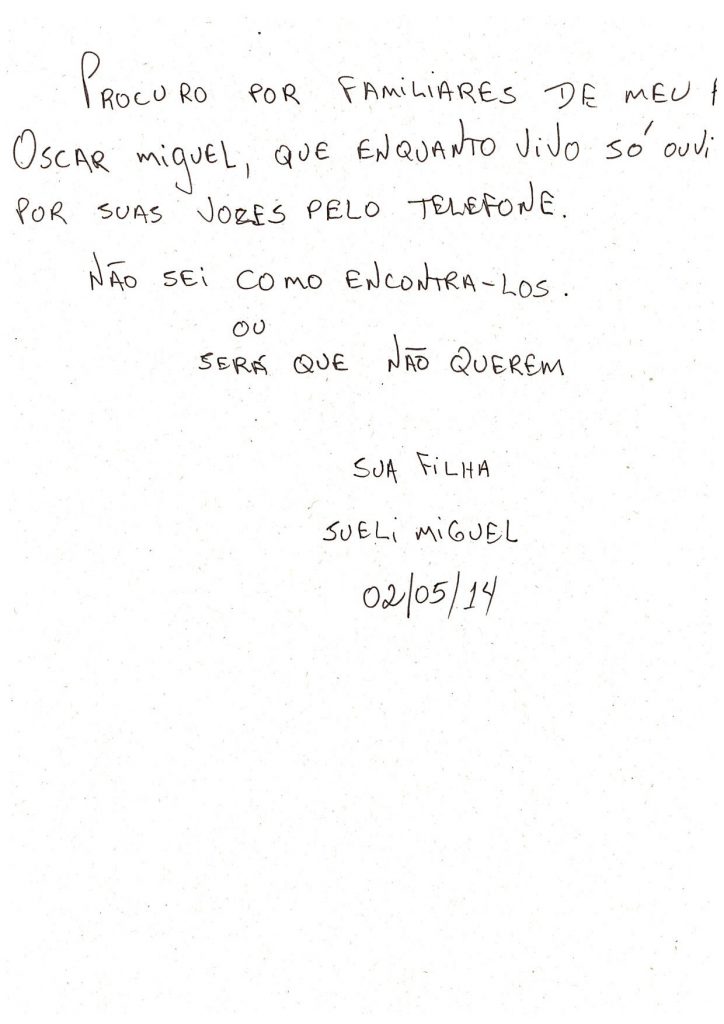 PROCURO POR FAMILIARES DE MEU
OSCAR MIGUEL, QUE ENQUANTO VIVO SÓ OUVI
POR SUAS VOZES PELO TELEFONE.
NÃO SEI COMO ENCONTRA-LOS.
OU
SERÁ QUE NÃO QUEREM
SUA FILHA
SUELI MIGUEL
02/05/14